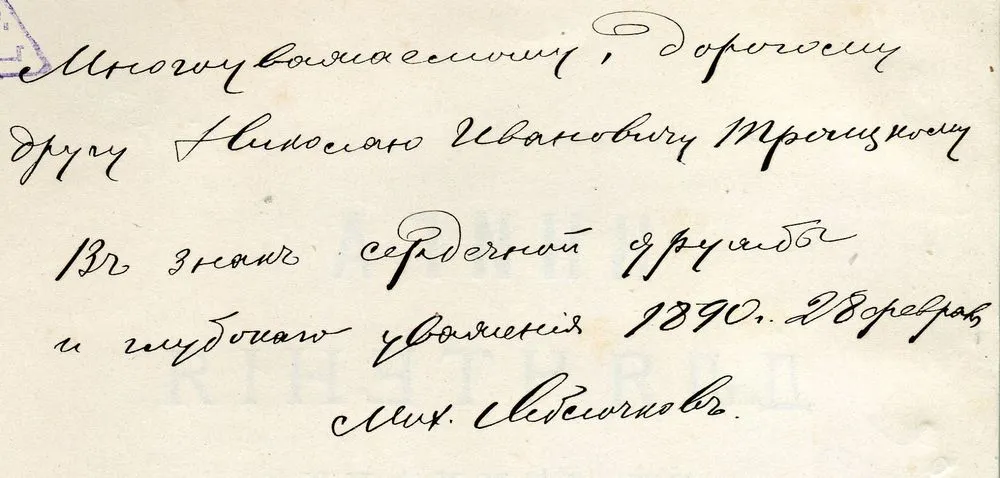 Многоуважаемому, дорогому
другу Николаю Ивановичу Троицкому
Въ знакъ сердечной дружбы
и глубокаго уваженія 1890 г. 28 феврал.
Мих. Яблочковъ.